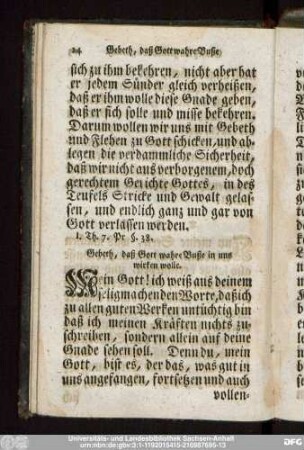 24 Gebeth, daß Gott wahre Buße
sich zu ihm bekehren, nicht aber hat
er jedem Sünder gleich verheißen,
daß er ihm wolle diese Gnade geben,
daß er sich solle und müsse bekehren.
Darum wollen wir uns mit Gebeth
und Flehen zu Gott schicken, und ab-
legen die verdammliche Sicherheit,
daß wir nicht aus verborgenem, doch
gerechtem Gerichte Gottes, in des
Teufels Stricke und Gewalt gelas-
sen, und endlich ganz und gar von
Gott verlassen werden.
1. Th. 7. Pr §. 38.
Gebeth, daß Gott wahre Buße in uns
wirken wolle.
Mein Gott! ich weiß aus deinem
seligmachenden Worte, daß ich
zu allen guten Werken untüchtig bin
daß ich meinen Kräften nichts zu-
schreiben, sondern allein auf deine
Gnade sehen soll. Denn du, mein
Gott, bist es, der das, was gut in
uns angefangen, fortsetzen und auch
vollen-
Universitäts- und Landesbibliothek Sachsen-Anhalt
urn:nbn:de:gbv:3:1-1192015415-216987695-13
DFG